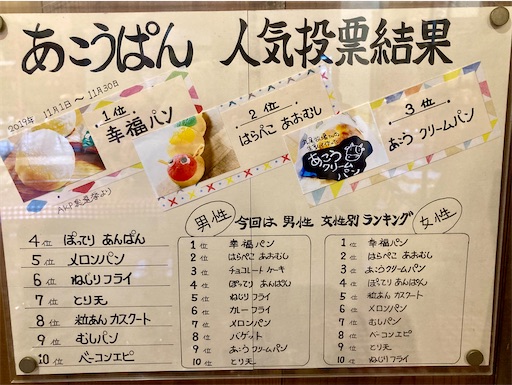 あこうぱん 人気投票結果
2019年 11月1日〜11月30日
1位
幸福パン
2位
はらぺこ あおむし
3位
あこうクリームパン
あこう
クリーム
パン
4位 ぽってり あんぱん
5位 メロンパン
6位 ねじりフライ
7位 とり天
8位 粒あん カスクート
9位 むしパン
10位 ベーコンエピ
今回は 男性 女性別 ランキング
男性
1位 幸福パン
2位 はらぺこ あおむし
3位 チョコレートケーキ
4位 ぽってり あんぱん
5位 ねじりフライ
6位 カレーフライ
7位 メロンパン
8位 バゲット
9位 あこうクリームパン
10位 とり天
女性
1位 幸福パン
2位 はらぺこ あおむし
3位 あこうクリームパン
4位 ぽってり あんぱん
5位 粒あん カスクート
6位 メロンパン
7位 むしパン
8位 ベーコンエピ
9位 とり天
10位 ねじりフライ